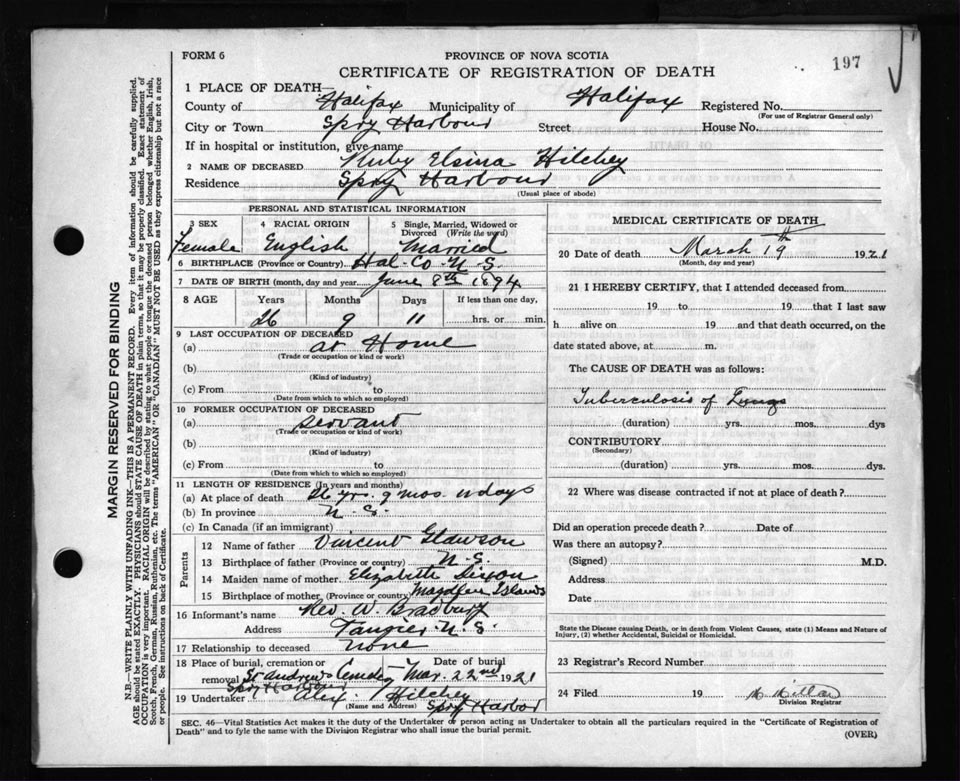 FORM 6
PROVINCE OF NOVA SCOTIA
197
CERTIFICATE OF REGISTRATION OF DEATH
1 PLACE OF DEATH
County of Halifax Municipality of Halifax Registered No.
(For use of Registrar General only)
City or Town Spry Harbour Street House No.
If in hospital or institution, give name
2 NAME OF DECEASED Ruby Elsina Hilchey
Residence Spry Harbour
(Usual place of abode)
PERSONAL AND STATISTICAL INFORMATION
3 SEX 4 RACIAL ORIGIN 5 Single, Married, Widowed or Divorced (Write the word)
Female English Married
6 BIRTHPLACE (Province or Country) Hal. Co. N. S.
7 DATE OF BIRTH (month, day and year) June 8th 1894
8 AGE Years Months Days If less than one day,
26 9 11 hrs. or min.
9 LAST OCCUPATION OF DECEASED
(a) at Home
(Trade or occupation or kind or work)
(b)
(Kind of industry)
(c) From to
(Date from which to which so employed)
10 FORMER OCCUPATION OF DECEASED
(a) Servant
(Trade or occupation or kind of work)
(b)
(Kind of industry)
(c) From to
(Date from which to which so employed)
11 LENGTH OF RESIDENCE (In years and months)
(a) At place of death 26 yrs. 9 mos. 11 days
(b) In province N. S.
(c) In Canada (if an immigrant)
Parents
12 Name of father Vincent Glawson
13 Birthplace of father (Province or country) N. S.
14 Maiden name of mother Elizabeth Dixon
15 Birthplace of mother (Province or country) Magdlen Islands
16 Informant's name Rev. W. Bradbury
Address Tangier N. S.
17 Relationship to deceased none
18 Place of burial, cremation or Date of burial
removal St andrews Mar. 22nd 1921
Spry Harbour
19 Undertaker Hilchey
(Name and Address) Spry Harbor
MEDICAL CERTIFICATE OF DEATH
20 Date of death March 19th 1921
(Month, day and year)
21 I HEREBY CERTIFY, that I attended deceased from
19 to 19 that I last saw
h alive on 19 and that death occurred, on the
date stated above, at m.
The CAUSE OF DEATH was as follows:
Tuberculosis of Lungs
(duration) yrs. mos. dys
CONTRIBUTORY
(Secondary)
(duration) yrs. mos. dys.
22 Where was disease contracted if not at place of death?
Did an operation precede death? Date of
Was there an autopsy?
(Signed) M.D.
Address
Date
State the Disease causing Death, or in death from Violent Causes, state (1) Means and Nature of
Injury, (2) whether Accidental, Suicidal or Homicidal.
23 Registrar's Record Number
24 Filed 19 Millar
Division Registrar
SEC. 46—Vital Statistics Act makes it the duty of the Undertaker or person acting as Undertaker to obtain all the particulars required in the "Certificate of Registration of
Death" and to fyle the same with the Division Registrar who shall issue the burial permit.
(OVER)
MARGIN RESERVED FOR BINDING
N.B.—WRITE PLAINLY WITH UNFADING INK—THIS IS A PERMANENT RECORD. Every item of information should be carefully supplied.
AGE should be stated EXACTLY. PHYSICIANS should STATE CAUSE OF DEATH in plain terms, so that it may be properly classified. Exact statement of
OCCUPATION is very important. RACIAL ORIGIN will be described by stating to what people or tongue the deceased person belonged whether English, Irish,
Scotch, French, German, Russian, Ruthenian, etc. The terms "AMERICAN" or "CANADIAN" MUST NOT BE USED as they express citizenship but not a race
or people. See instructions on back of Certificate.